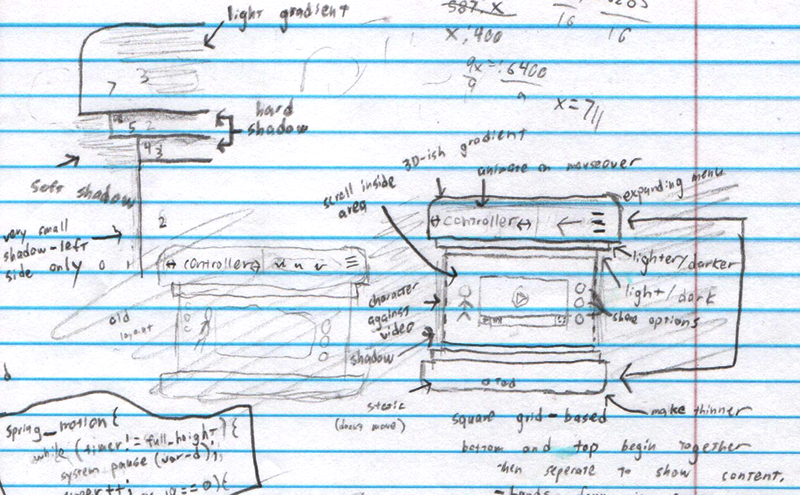 light gradient
587 x
16
16
x, 400
9x = 6400
9
9
x = 711
3
7
hard
shadow
5 2
4 3
soft shadow
2
very small
shadow-left
side only
0 1
old
layout
controller
3D-ish gradient
animate on mouseover
scroll inside
area
expanding menu
controller
lighter/darker
light/dark
share options
character
against
video
shadow
static
(doesn't move)
make thinner
square grid-based
bottom and top begin together
then seperate to show content.
spring_motion {
while (timer != full_height) {
system pause (var-d);
== 0) {